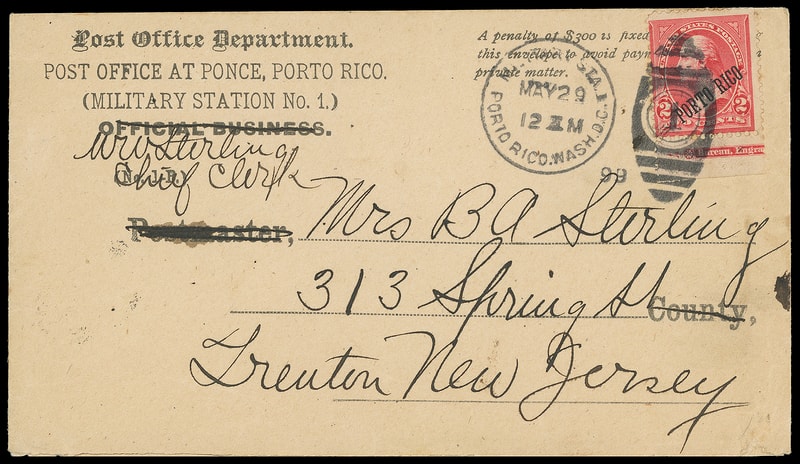 Post Office Department.
POST OFFICE AT PONCE, PORTO RICO.
(MILITARY STATION No. 1.)
OFFICIAL BUSINESS.
Sterling
Chief Clerk
Postmaster,
A penalty of $300 is fixed
this envelope to avoid paym
private matter.
STA. 1
MAY 29
12 M
PORTO RICO. WASH. D.C.
99
UNITED STATES POSTAGE
PORTO RICO
2 2
CENTS
Bureau, Engra
Mrs B A Sterling
313 Spring St
County,
Trenton New Jersey